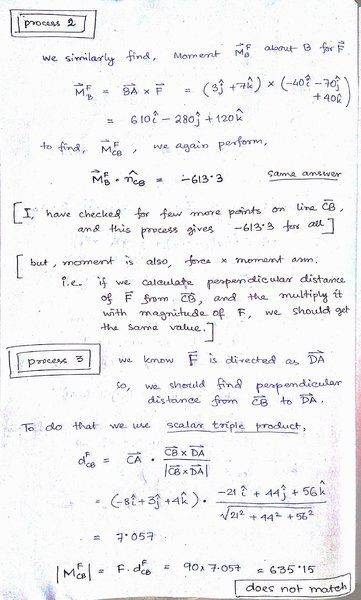 process 2
we similarly find, Moment M⃗_B^F about B for F⃗
M⃗_B^F = B⃗A × F⃗ = (3ĵ + 7k̂) × (-40î - 70ĵ + 40k̂)
= 610î - 280ĵ + 120k̂
to find, M⃗_CB^F, we again perform,
M⃗_B^F · n̂_CB = -613·3 same answer
[I, have checked for few more points on line C⃗B,
and this process gives -613·3 for all]
[but, moment is also, force × moment arm.
i.e. if we calculate perpendicular distance
of F⃗ from C⃗B, and the multiply it
with magnitude of F, we should get
the same value.]
process 3
we know F⃗ is directed as D⃗A
so, we should find perpendicular
distance from C⃗B to D⃗A.
To do that we use scalar triple product,
d_CB^F = C⃗A · (C⃗B × D⃗A) / |C⃗B × D⃗A|
= (-8î + 3ĵ + 4k̂) · (-21î + 44ĵ + 56k̂) / √(21² + 44² + 56²)
= 7·057
|M_CB^F| = F·d_CB^F = 90×7·057 = 635·15
does not match